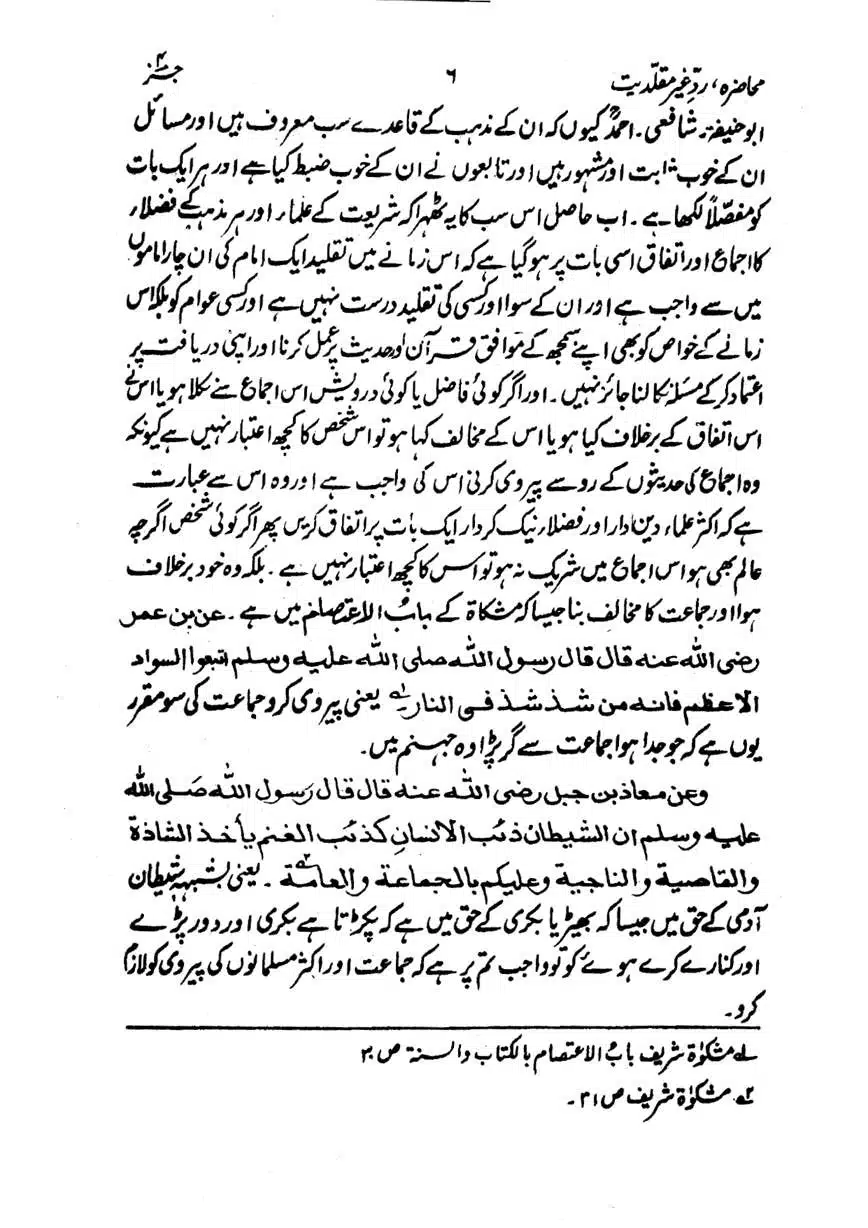 محاضرہ، ردِّ غیر مقلّدیت ۶ جز ۴
ابوحنیفہ۔ شافعی۔ احمدؒ کیوں کہ ان کے مذہب کے قاعدے سب معروف ہیں اور مسائل
ان کے خوب ثابت اور مشہور ہیں اور تابعوں نے ان کے خوب ضبط کیا ہے اور ہر ایک بات
کو مفصّلاً لکھا ہے۔ اب حاصل اس سب کا یہ ٹھہرا کہ شریعت کے علماء اور ہر مذہب کے فضلاء
کا اجماع اور اتفاق اسی بات پر ہوگیا ہے کہ اس زمانے میں تقلید ایک امام کی ان چار اماموں
میں سے واجب ہے اور ان کے سوا اور کسی کی تقلید درست نہیں ہے اور کسی عوام کو بلکہ اس
زمانے کے خواص کو بھی اپنے سمجھ کے موافق قرآن اور حدیث پر عمل کرنا اور اپنی دریافت پر
اعتماد کرکے مسئلہ نکالنا جائز نہیں۔ اور اگر کوئی فاضل یا کوئی درویش اس اجماع سے نکلا ہو یا اس نے
اس اتفاق کے برخلاف کیا ہو یا اس کے مخالف کہا ہو تو اس شخص کا کچھ اعتبار نہیں ہے کیونکہ
وہ اجماع کی حدیثوں کے رو سے پیروی کرنی اس کی واجب ہے اور وہ اس سے عبارت
ہے کہ اکثر علماء دین دار اور فضلاء نیک کردار ایک بات پر اتفاق کریں پھر اگر کوئی شخص اگرچہ
عالم بھی ہو اس اجماع میں شریک نہ ہو تو اس کا کچھ اعتبار نہیں ہے۔ بلکہ وہ خود برخلاف
ہوا اور جماعت کا مخالف بنا جیسا کہ مشکاۃ کے بابُ الاعتصام میں ہے۔ عن بن عمر
رضی اللہ عنہ قال قال رسول اللہ صلی اللہ علیہ وسلم اتبعوا السواد
الاعظم فانہ من شذ شذ فی النار ؎۱ یعنی پیروی کرو جماعت کی سو مقرر
یوں ہے کہ جو جدا ہوا جماعت سے گر پڑا وہ جہنم میں۔
وعن معاذ بن جبل رضی اللہ عنہ قال قال رسول اللہ صلی اللہ
علیہ وسلم ان الشیطان ذئب الانسان کذئب الغنم یأخذ الشاذۃ
والقاصیۃ والناجیۃ وعلیکم بالجماعۃ والعامۃ ؎۲۔ یعنی بشبہہ شیطان
آدمی کے حق میں جیسا کہ بھیڑیا بکری کے حق میں ہے کہ پکڑتا ہے بکری اور دور پڑے
اور کنارے کرے ہوئے کو تو واجب تم پر ہے کہ جماعت اور اکثر مسلمانوں کی پیروی کو لازم
کرو۔
؎۱ مشکوٰۃ شریف بابُ الاعتصام بالکتاب والسنۃ ص ۳۰
؎۲ مشکوٰۃ شریف ص ۳۱۔